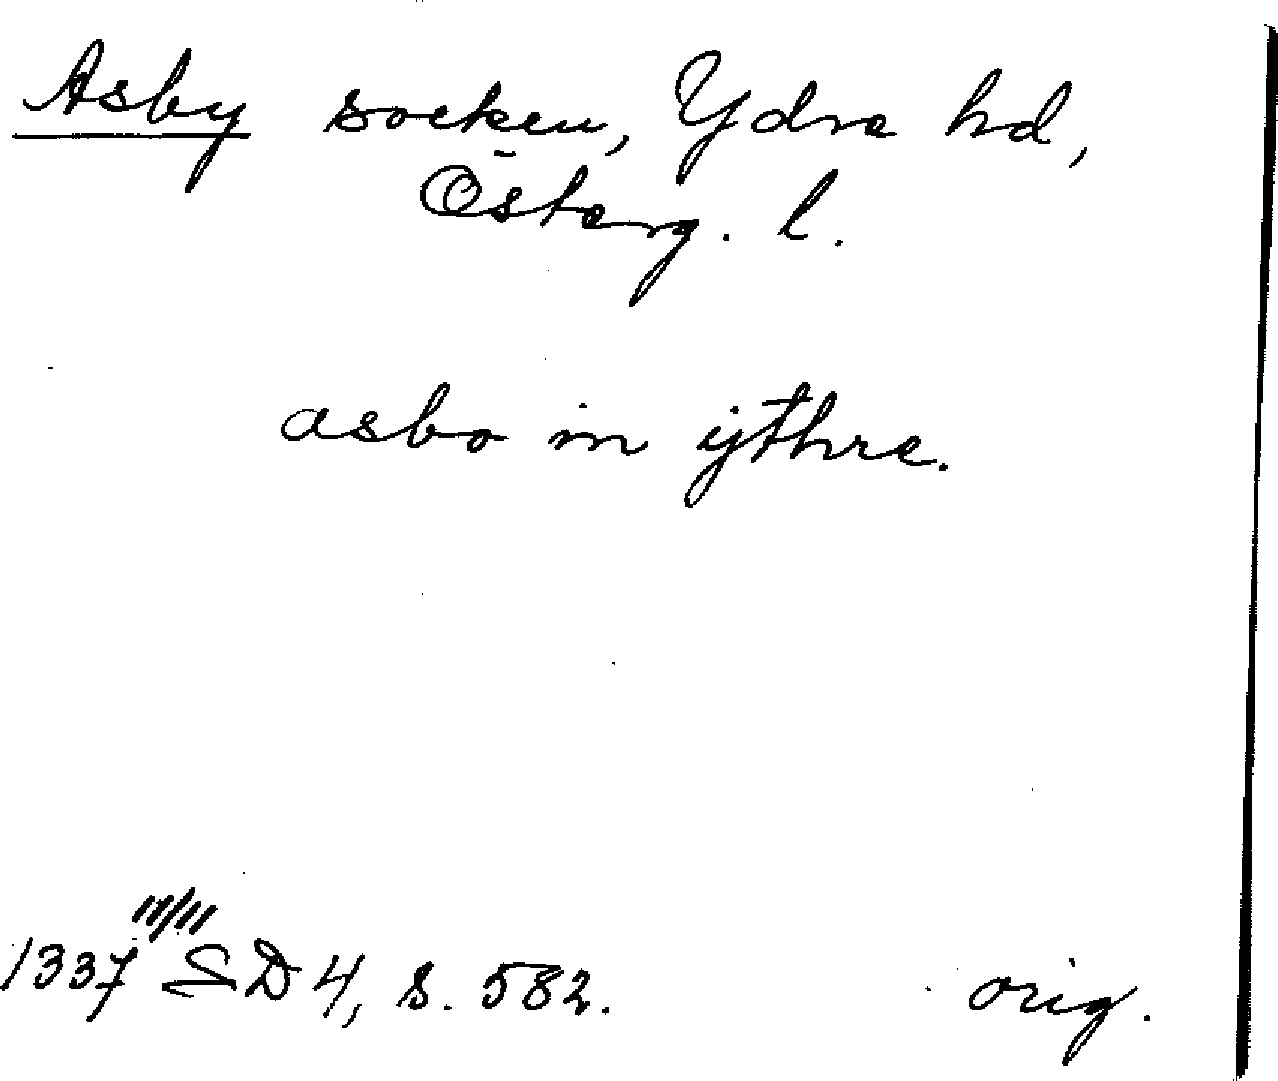 Asby socken, Ydre hd,
Österg. l.
asbo in ythre.
1337 11/11 SD 4, s. 582. orig.